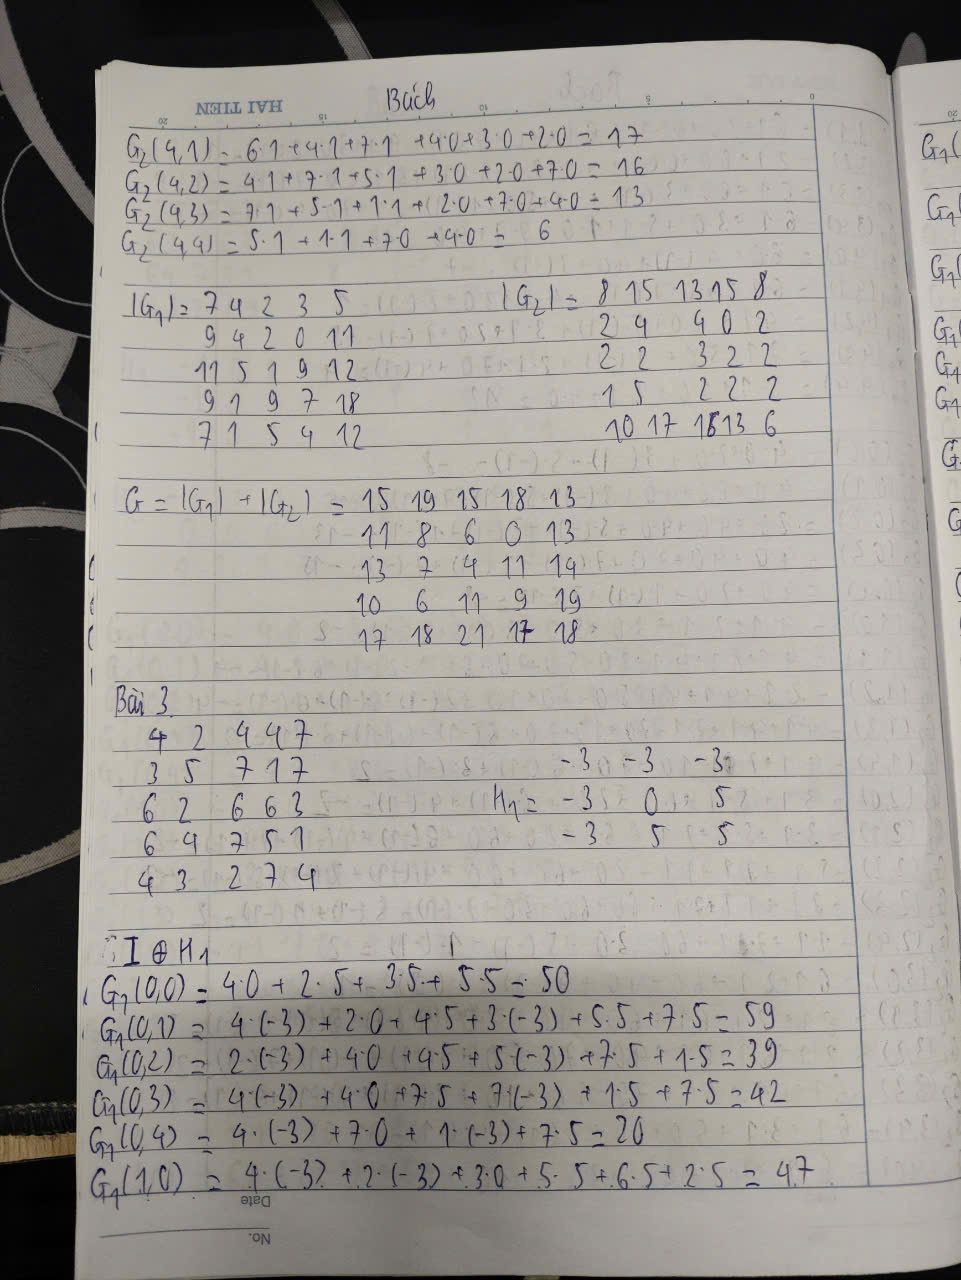 HAI TIEN
Bách
20 15 10 5 0
G₂(4,1) = 6·1+4·1+7·1 +4·0+3·0+2·0 = 17
G₂(4,2) = 4·1+7·1+5·1 +3·0+2·0+7·0 = 16
G₂(4,3) = 7·1+5·1+1·1+2·0+7·0+4·0 = 13
G₂(4,4) = 5·1+1·1+7·0+4·0= 6
|G₁| = 7 4 2 3 5 |G₂| = 8 15 13 15 8
9 4 2 0 11 2 4 4 0 2
11 5 1 9 12 2 2 3 2 2
9 1 9 7 18 1 5 2 2 2
7 1 5 4 12 10 17 16 13 6
G = |G₁| + |G₂| = 15 19 15 18 13
11 8 6 0 13
13 7 4 11 14
10 6 11 9 19
17 18 21 17 18
Bài 3.
4 2 4 4 7
3 5 7 1 7 -3 -3 -3
6 2 6 6 3 H₁ = -3 0 5
6 4 7 5 1 -3 5 5
4 3 2 7 4
I ⊕ H₁
G₁(0,0) = 4·0 + 2·5 + 3·5 + 5·5 = 50
G₁(0,1) = 4·(-3) + 2·0 + 4·5 + 3·(-3) + 5·5 + 7·5 = 59
G₁(0,2) = 2·(-3) + 4·0 + 4·5 + 5·(-3) + 7·5 + 1·5 = 39
G₁(0,3) = 4·(-3) + 4·0 + 7·5 + 7·(-3) + 1·5 + 7·5 = 42
G₁(0,4) = 4·(-3) + 7·0 + 1·(-3) + 7·5 = 20
G₁(1,0) = 4·(-3) + 2·(-3) + 3·0 + 5·5 + 6·5 + 2·5 = 47
Date
No.